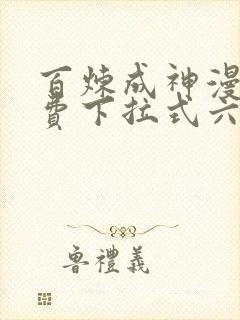 百炼成神漫
費下拉式六
魯禮義